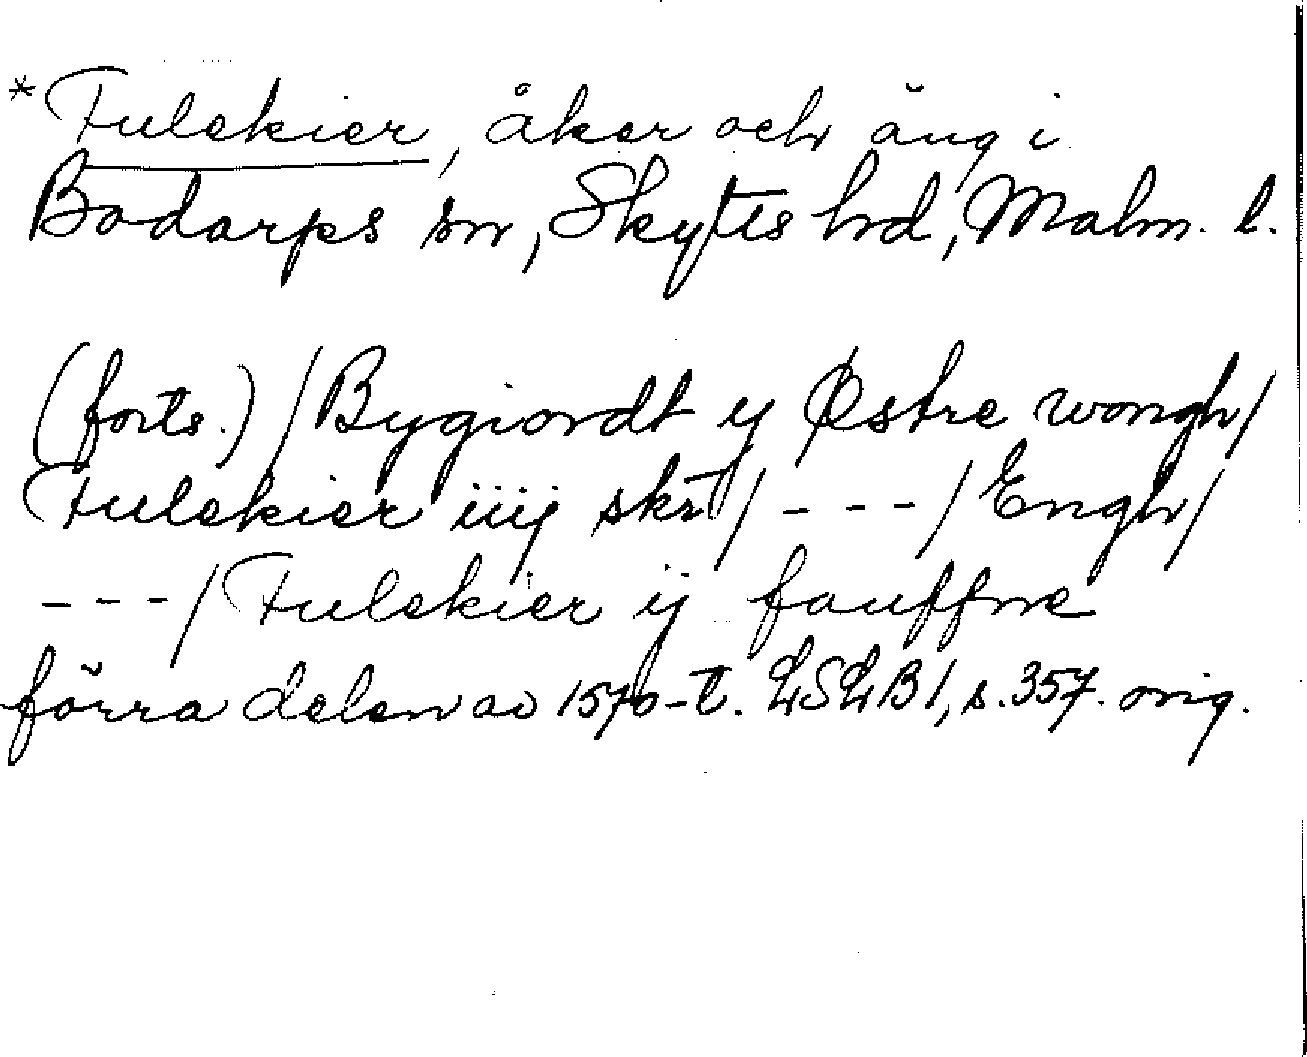 *Fulekier, åker och äng i
Bodarps sn, Skytts hd, Malm. l.
(forts.) / Bygiordt y Østre wongh /
Fulekier iiij skr / - - - / Engh /
- - - / Fulekier ij fauffne
förra delen av 1570-t. LSLB 1, s. 357. orig.